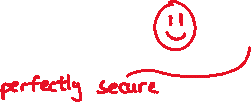 perfectly secure